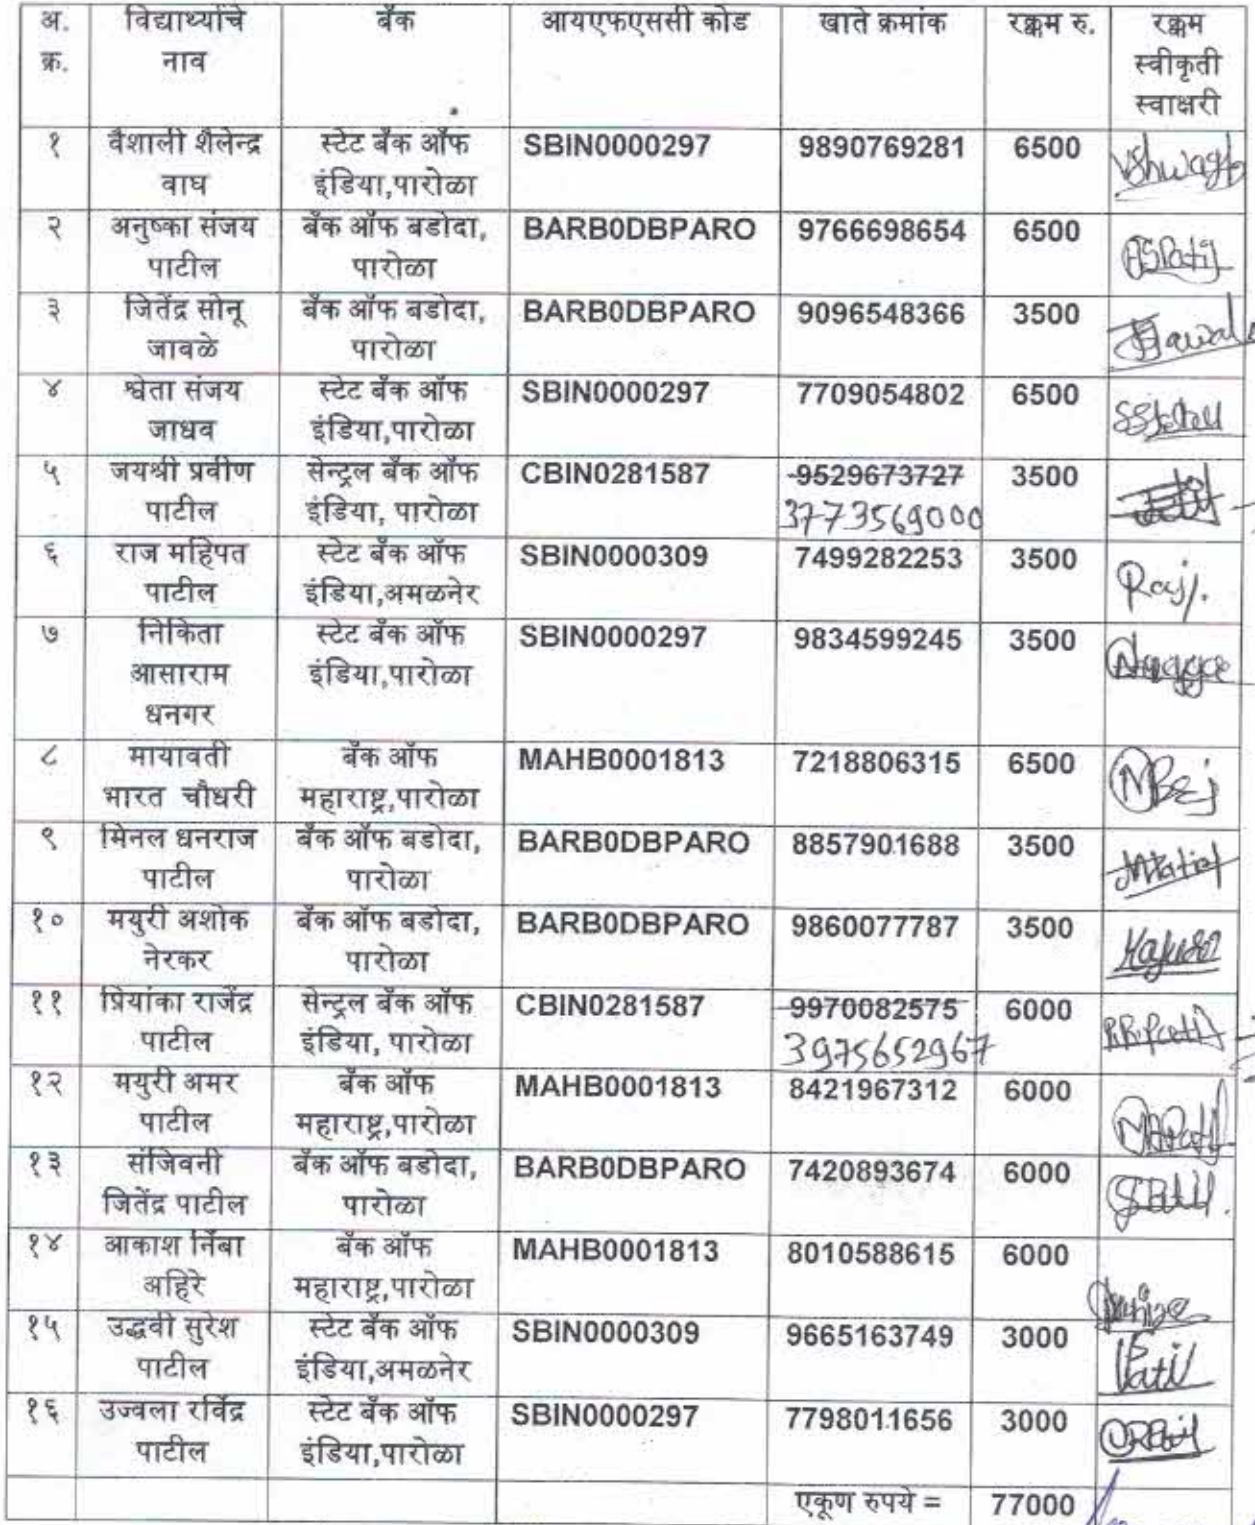 अ. क्र. विद्यार्थ्याचे नाव बँक आयएफएससी कोड खाते क्रमांक रक्कम रु. रक्कम स्वीकृती स्वाक्षरी
१ वैशाली शैलेन्द्र वाघ स्टेट बँक ऑफ इंडिया,पारोळा SBIN0000297 9890769281 6500
२ अनुष्का संजय पाटील बँक ऑफ बडोदा, पारोळा BARB0DBPARO 9766698654 6500 ASPatil
३ जितेंद्र सोनू जावळे बँक ऑफ बडोदा, पारोळा BARB0DBPARO 9096548366 3500
४ श्वेता संजय जाधव स्टेट बँक ऑफ इंडिया,पारोळा SBIN0000297 7709054802 6500
५ जयश्री प्रवीण पाटील सेन्ट्रल बँक ऑफ इंडिया, पारोळा CBIN0281587 9529673727 3773569000 3500
६ राज महिपत पाटील स्टेट बँक ऑफ इंडिया,अमळनेर SBIN0000309 7499282253 3500 Raj.
७ निकिता आसाराम धनगर स्टेट बँक ऑफ इंडिया,पारोळा SBIN0000297 9834599245 3500
८ मायावती भारत चौधरी बँक ऑफ महाराष्ट्र,पारोळा MAHB0001813 7218806315 6500
९ मिनल धनराज पाटील बँक ऑफ बडोदा, पारोळा BARB0DBPARO 8857901688 3500
१० मयुरी अशोक नेरकर बँक ऑफ बडोदा, पारोळा BARB0DBPARO 9860077787 3500
११ प्रियांका राजेंद्र पाटील सेन्ट्रल बँक ऑफ इंडिया, पारोळा CBIN0281587 9970082575 3975652967 6000 P.R.Patil
१२ मयुरी अमर पाटील बँक ऑफ महाराष्ट्र,पारोळा MAHB0001813 8421967312 6000 MAPatil
१३ संजिवनी जितेंद्र पाटील बँक ऑफ बडोदा, पारोळा BARB0DBPARO 7420893674 6000
१४ आकाश निंबा अहिरे बँक ऑफ महाराष्ट्र,पारोळा MAHB0001813 8010588615 6000
१५ उद्धवी सुरेश पाटील स्टेट बँक ऑफ इंडिया,अमळनेर SBIN0000309 9665163749 3000 Patil
१६ उज्वला रविंद्र पाटील स्टेट बँक ऑफ इंडिया,पारोळा SBIN0000297 7798011656 3000
एकूण रुपये = 77000